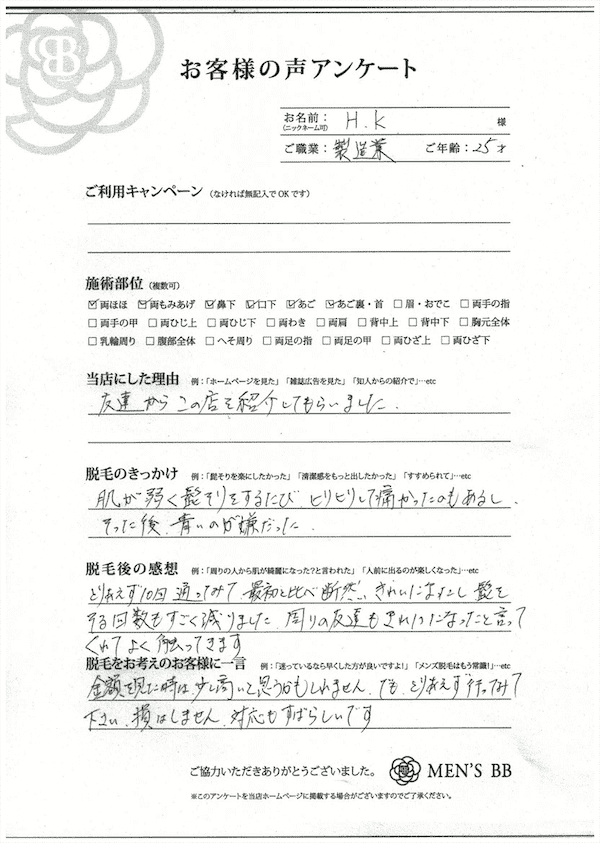 お客様の声アンケート
お名前：
(ニックネーム可)
H.K
様
ご職業：製造業 ご年齢：25才
ご利用キャンペーン（なければ無記入でOKです）
施術部位（複数可）
☑両ほほ ☑両もみあげ ☑鼻下 ☑口下 ☑あご ☑あご裏・首 □眉・おでこ □両手の指
□両手の甲 □両ひじ上 □両ひじ下 □両わき □両肩 □背中上 □背中下 □胸元全体
□乳輪周り □腹部全体 □へそ周り □両足の指 □両足の甲 □両ひざ上 □両ひざ下
当店にした理由 例：「ホームページを見た」「雑誌広告を見た」「知人からの紹介で」…etc
友達からこの店を紹介してもらいました.
脱毛のきっかけ 例：「髭そりを楽にしたかった」「清潔感をもっと出したかった」「すすめられて」…etc
肌が弱く髭そりをするたび、ヒリヒリして痛かったのもあるし、
そった後、青いのが嫌だった.
脱毛後の感想 例：「周りの人から肌が綺麗になった？と言われた」「人前に出るのが楽しくなった」…etc
とりあえず10回通ってみて 最初と比べ断然、きれいになったし 髭を
そる回数もすごく減りました. 周りの友達もきれいになったと言って
くれてよく触ってきます
脱毛をお考えのお客様に一言 例：「迷っているなら早くした方が良いですよ！」「メンズ脱毛はもう常識！」…etc
金額を見た時は、少し高いと思うかもしれません. でも、とりあえず行ってみて
下さい、損はしません. 対応もすばらしいです
ご協力いただきありがとうございました。 MEN'S BB
※このアンケートを当店ホームページに掲載する場合がございますのでご了承ください。